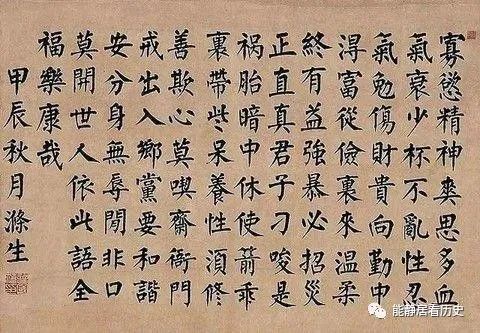 寡慾精神爽思多血
氣衰少杯不亂性忍
氣勉傷財貴向勤中
淂富從儉裏來温柔
終有益強暴必招災
正直真君子刁唆是
祸胎暗中休使箭乖
裏帶些呆養性湏修
善欺心莫喫齋衙門
戒出入鄉黨要和諧
安分身無辱閒非口
莫開世人依此語全
福樂康哉
甲辰秋月滌生
能静居看历史